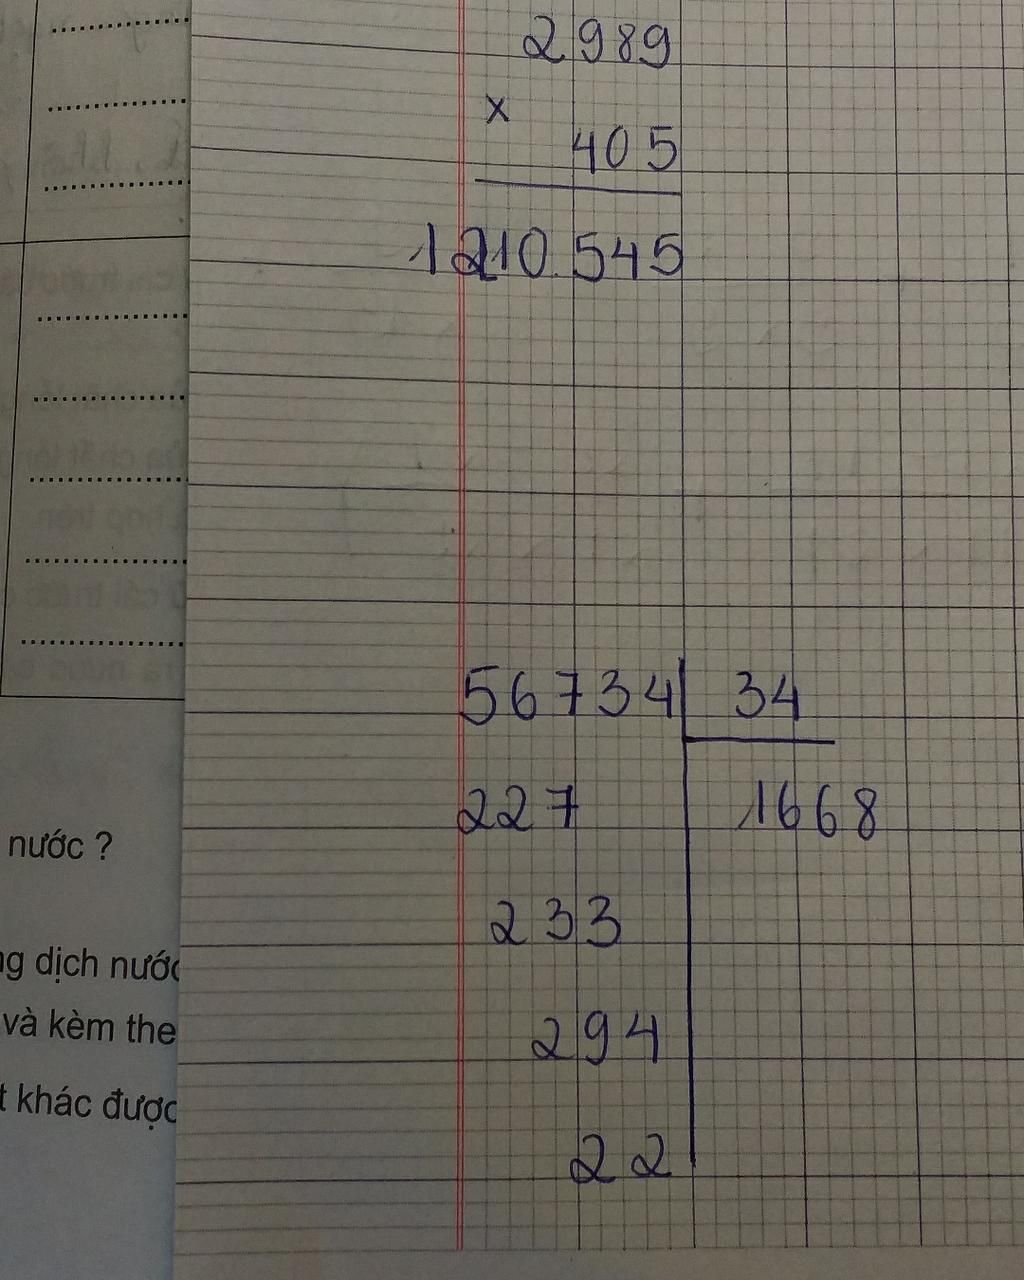 2989
×
405
1210.545
56734 34
227 1668
233
294
22
nước ?
dịch nước
và kèm the
khác được